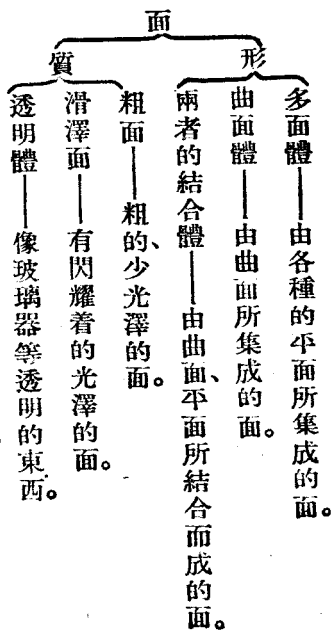 面
形
多面體——由各種的平面所集成的面。
曲面體——由曲面所集成的面。
兩者的結合體——由曲面、平面所結合而成的面。
質
粗面——粗的、少光澤的面。
滑澤面——有閃耀着的光澤的面。
透明體——像玻璃器等透明的東西。